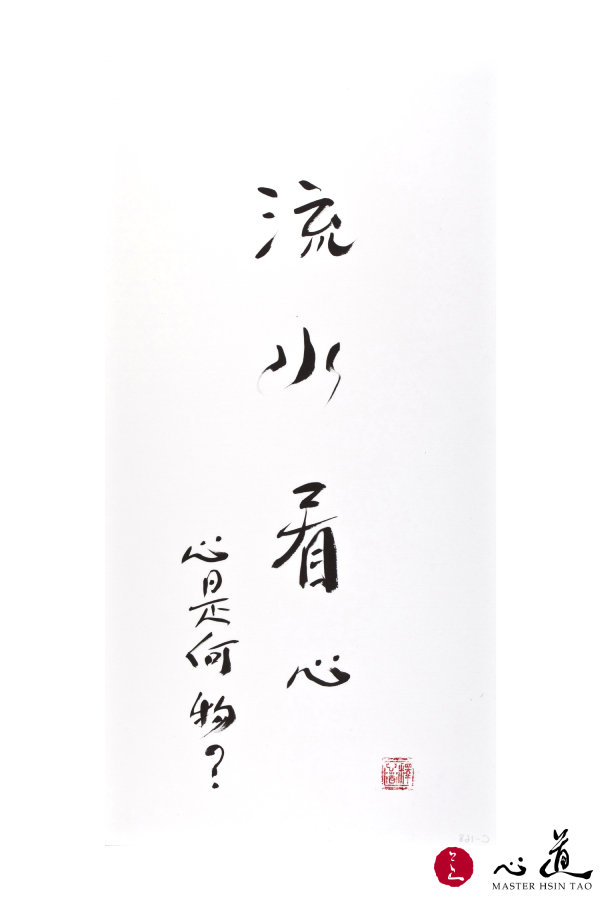 流水看心
心是何物？
釋心道
心道
MASTER HSIN TAO